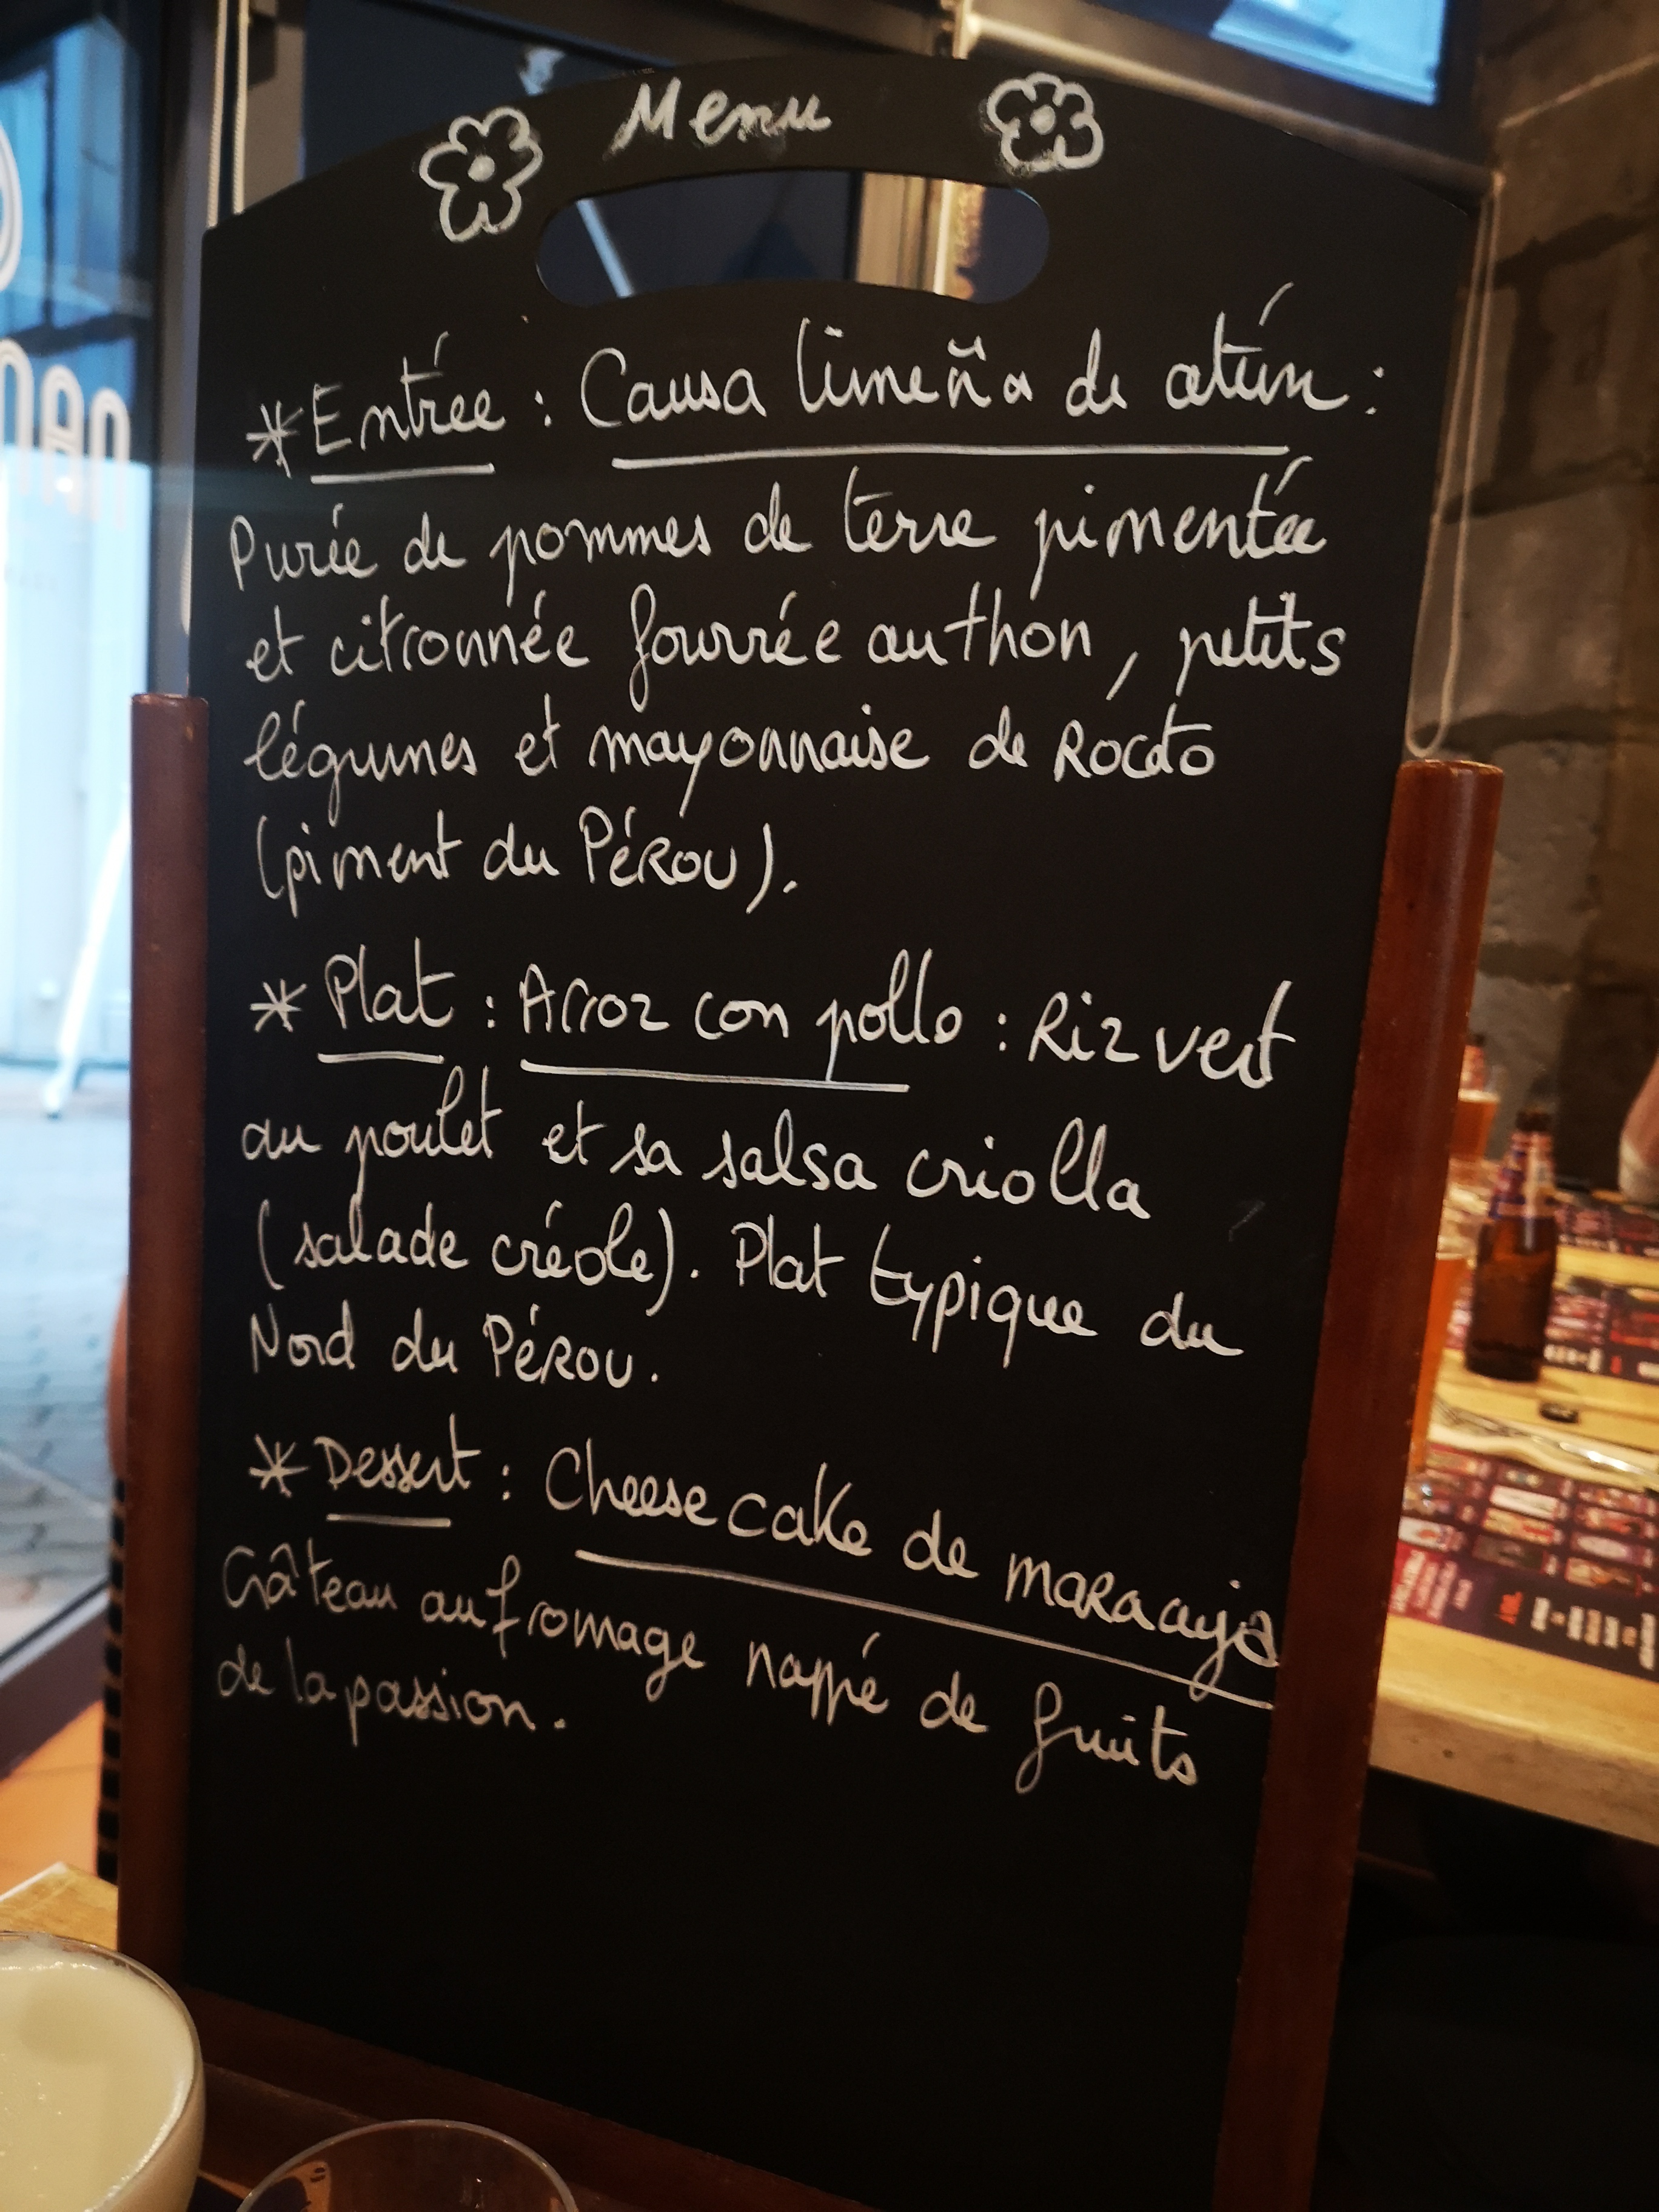 Menu
*Entrée : Causa limeña de atún :
Purée de pommes de terre pimentée
et citronnée fourrée au thon, petits
légumes et mayonnaise de Rocoto
(piment du Pérou).
*Plat : Arroz con pollo : Riz vert
au poulet et sa salsa criolla
(salade créole). Plat typique du
Nord du Pérou.
*Dessert : Cheese cake de maracuja
Gâteau au fromage nappé de fruits
de la passion.